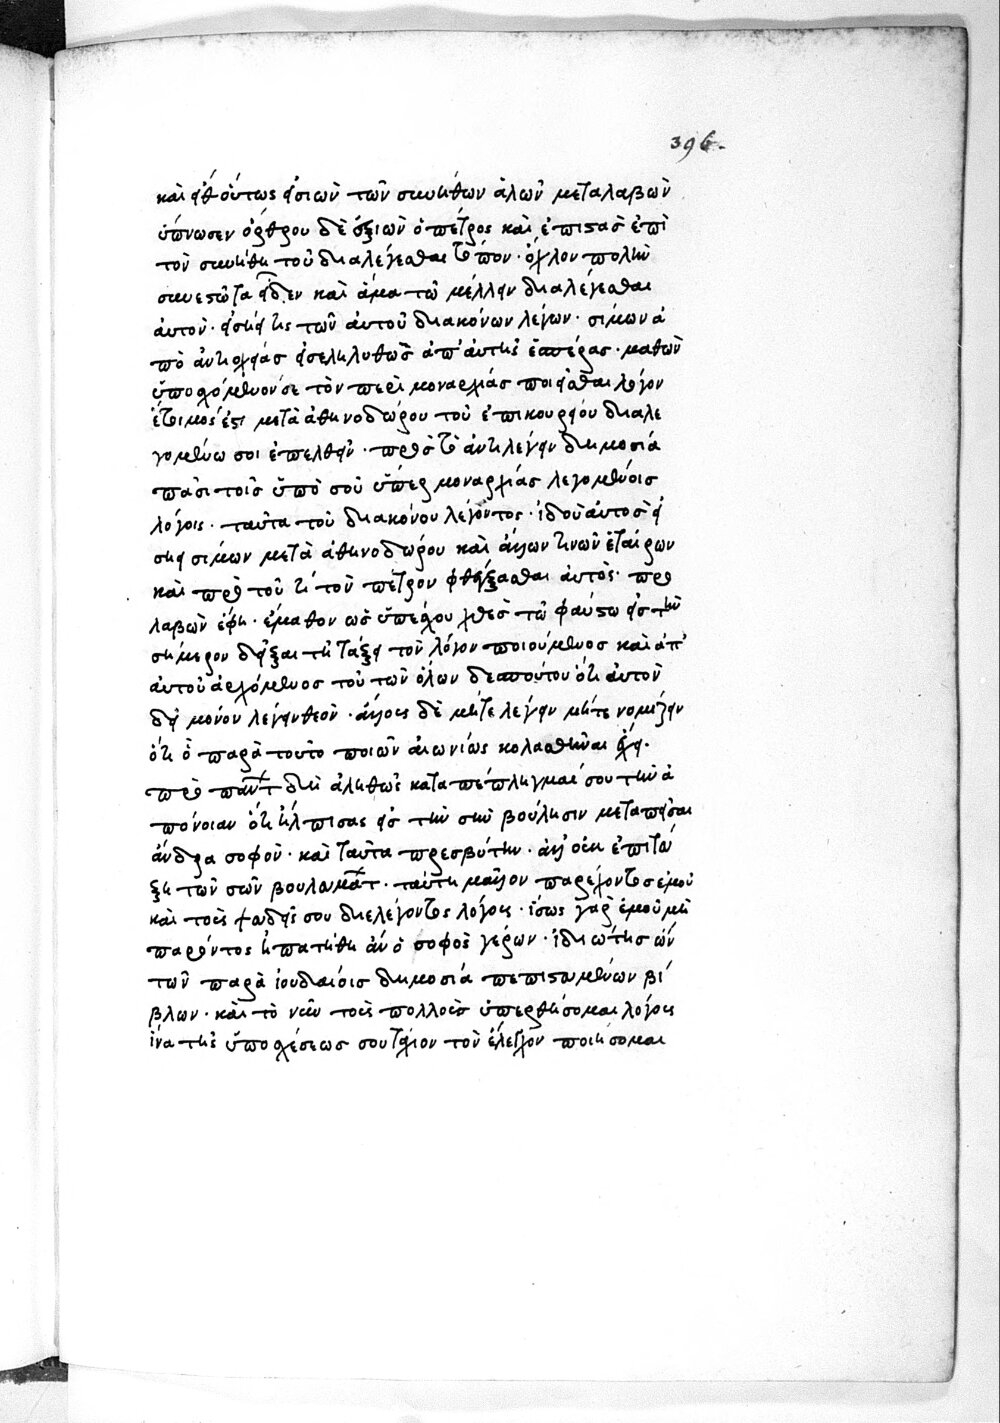 396.
καὶ εἶθ οὕτως εἰσιὼν τῶν συνήθων ἁλῶν μεταλαβὼν
ὕπνωσεν ὄρθρου δὲ ἐξιὼν ὁ πέτρος καὶ ἐπιστὰς ἐπὶ
τὸν συνήθη τοῦ διαλέγεσθαι τόπον · ὄχλον πολὺν
συνεστῶτα εἶδεν καὶ ἅμα τῶ μέλλειν διαλέγεσθαι
αὐτὸν · εἰσήει τις τῶν αὐτοῦ διακόνων λέγων · σίμων ἀ
πὸ ἀντιοχείας εἰσεληλυθὼς ἀπ' αὐτῆς ἑσπέρας · μαθὼν
ὑποσχόμενόν σε τὸν περὶ μοναρχίας ποιεῖσθαι λόγον
ἕτοιμός ἐστι μετὰ ἀθηνοδώρου τοῦ ἐπικουρείου διαλε
γομένω σοι ἐπελθεῖν · πρὸς τὸ ἀντιλέγειν δημοσία
πᾶσι τοῖς ὑπὸ σοῦ ὑπὲρ μοναρχίας λεγομένοις
λόγοις · ταῦτα τοῦ διακόνου λέγοντος · ἰδοὺ αὐτὸς εἰ
σῄει σίμων μετὰ ἀθηνοδώρου καὶ ἄλλων τινῶν ἑταίρων
καὶ πρὸ τοῦ τί τὸν πέτρον φθέγξασθαι αὐτὸς προ
λαβὼν ἔφη · ἔμαθον ὡς ὑπέσχου χθὲς τῶ φαύστω εἰς τὴν
σήμερον δεῖξαι τῇ τάξει τὸν λόγον ποιούμενος καὶ ἀπ'
αὐτοῦ ἀρχόμενος τοῦ τῶν ὅλων δεσπότου ὅτι αὐτὸν
δεῖ μόνον λέγειν θεόν · ἄλλους δὲ μήτε λέγειν μήτε νομίζειν
ὅτι ὁ παρὰ τοῦτο ποιῶν αἰωνίως κολασθῆναι ἔχει.
πρὸ πάντ δὴ ἀληθῶς καταπέπληγμαί σου τὴν ἀ
πόνοιαν ὅτι ἤλπισας εἰς τὴν σὴν βούλησιν μεταπεῖσαι
ἄνδρα σοφὸν · καὶ ταῦτα πρεσβύτην · ἀλλ' οὐκ ἐπιτεύ
ξη τῶν σῶν βουλευμάτ · ταύτη μᾶλλον παρεχοντος ἐμοῦ
καὶ τοὺς ψευδεῖς σου διελέγοντος λόγους · ἴσως γὰρ ἐμοῦ μὴ
παρόντος ἠπατήθη ἂν ὁ σοφὸς γέρων · ἰδιώτης ὢν
τῶν παρὰ ἰουδαίοις δημοσία πεπιστευμένων βί
βλων · καὶ τὸ νῦν τοὺς πολλοὺς ὑπερθήσομαι λόγους
ἵνα τῆς ὑποσχέσεως σου τάχιον τὸν ἔλεγχον ποιήσομαι